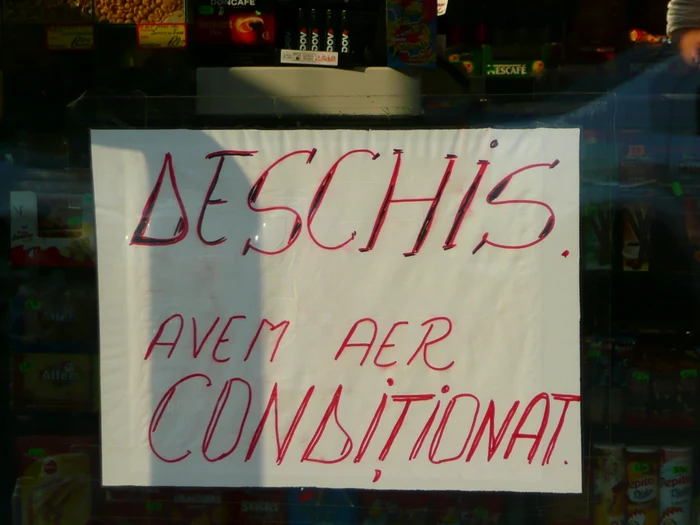 DONCAFE
NESCAFE
DESCHIS.
AVEM AER
CONDIȚIONAT.